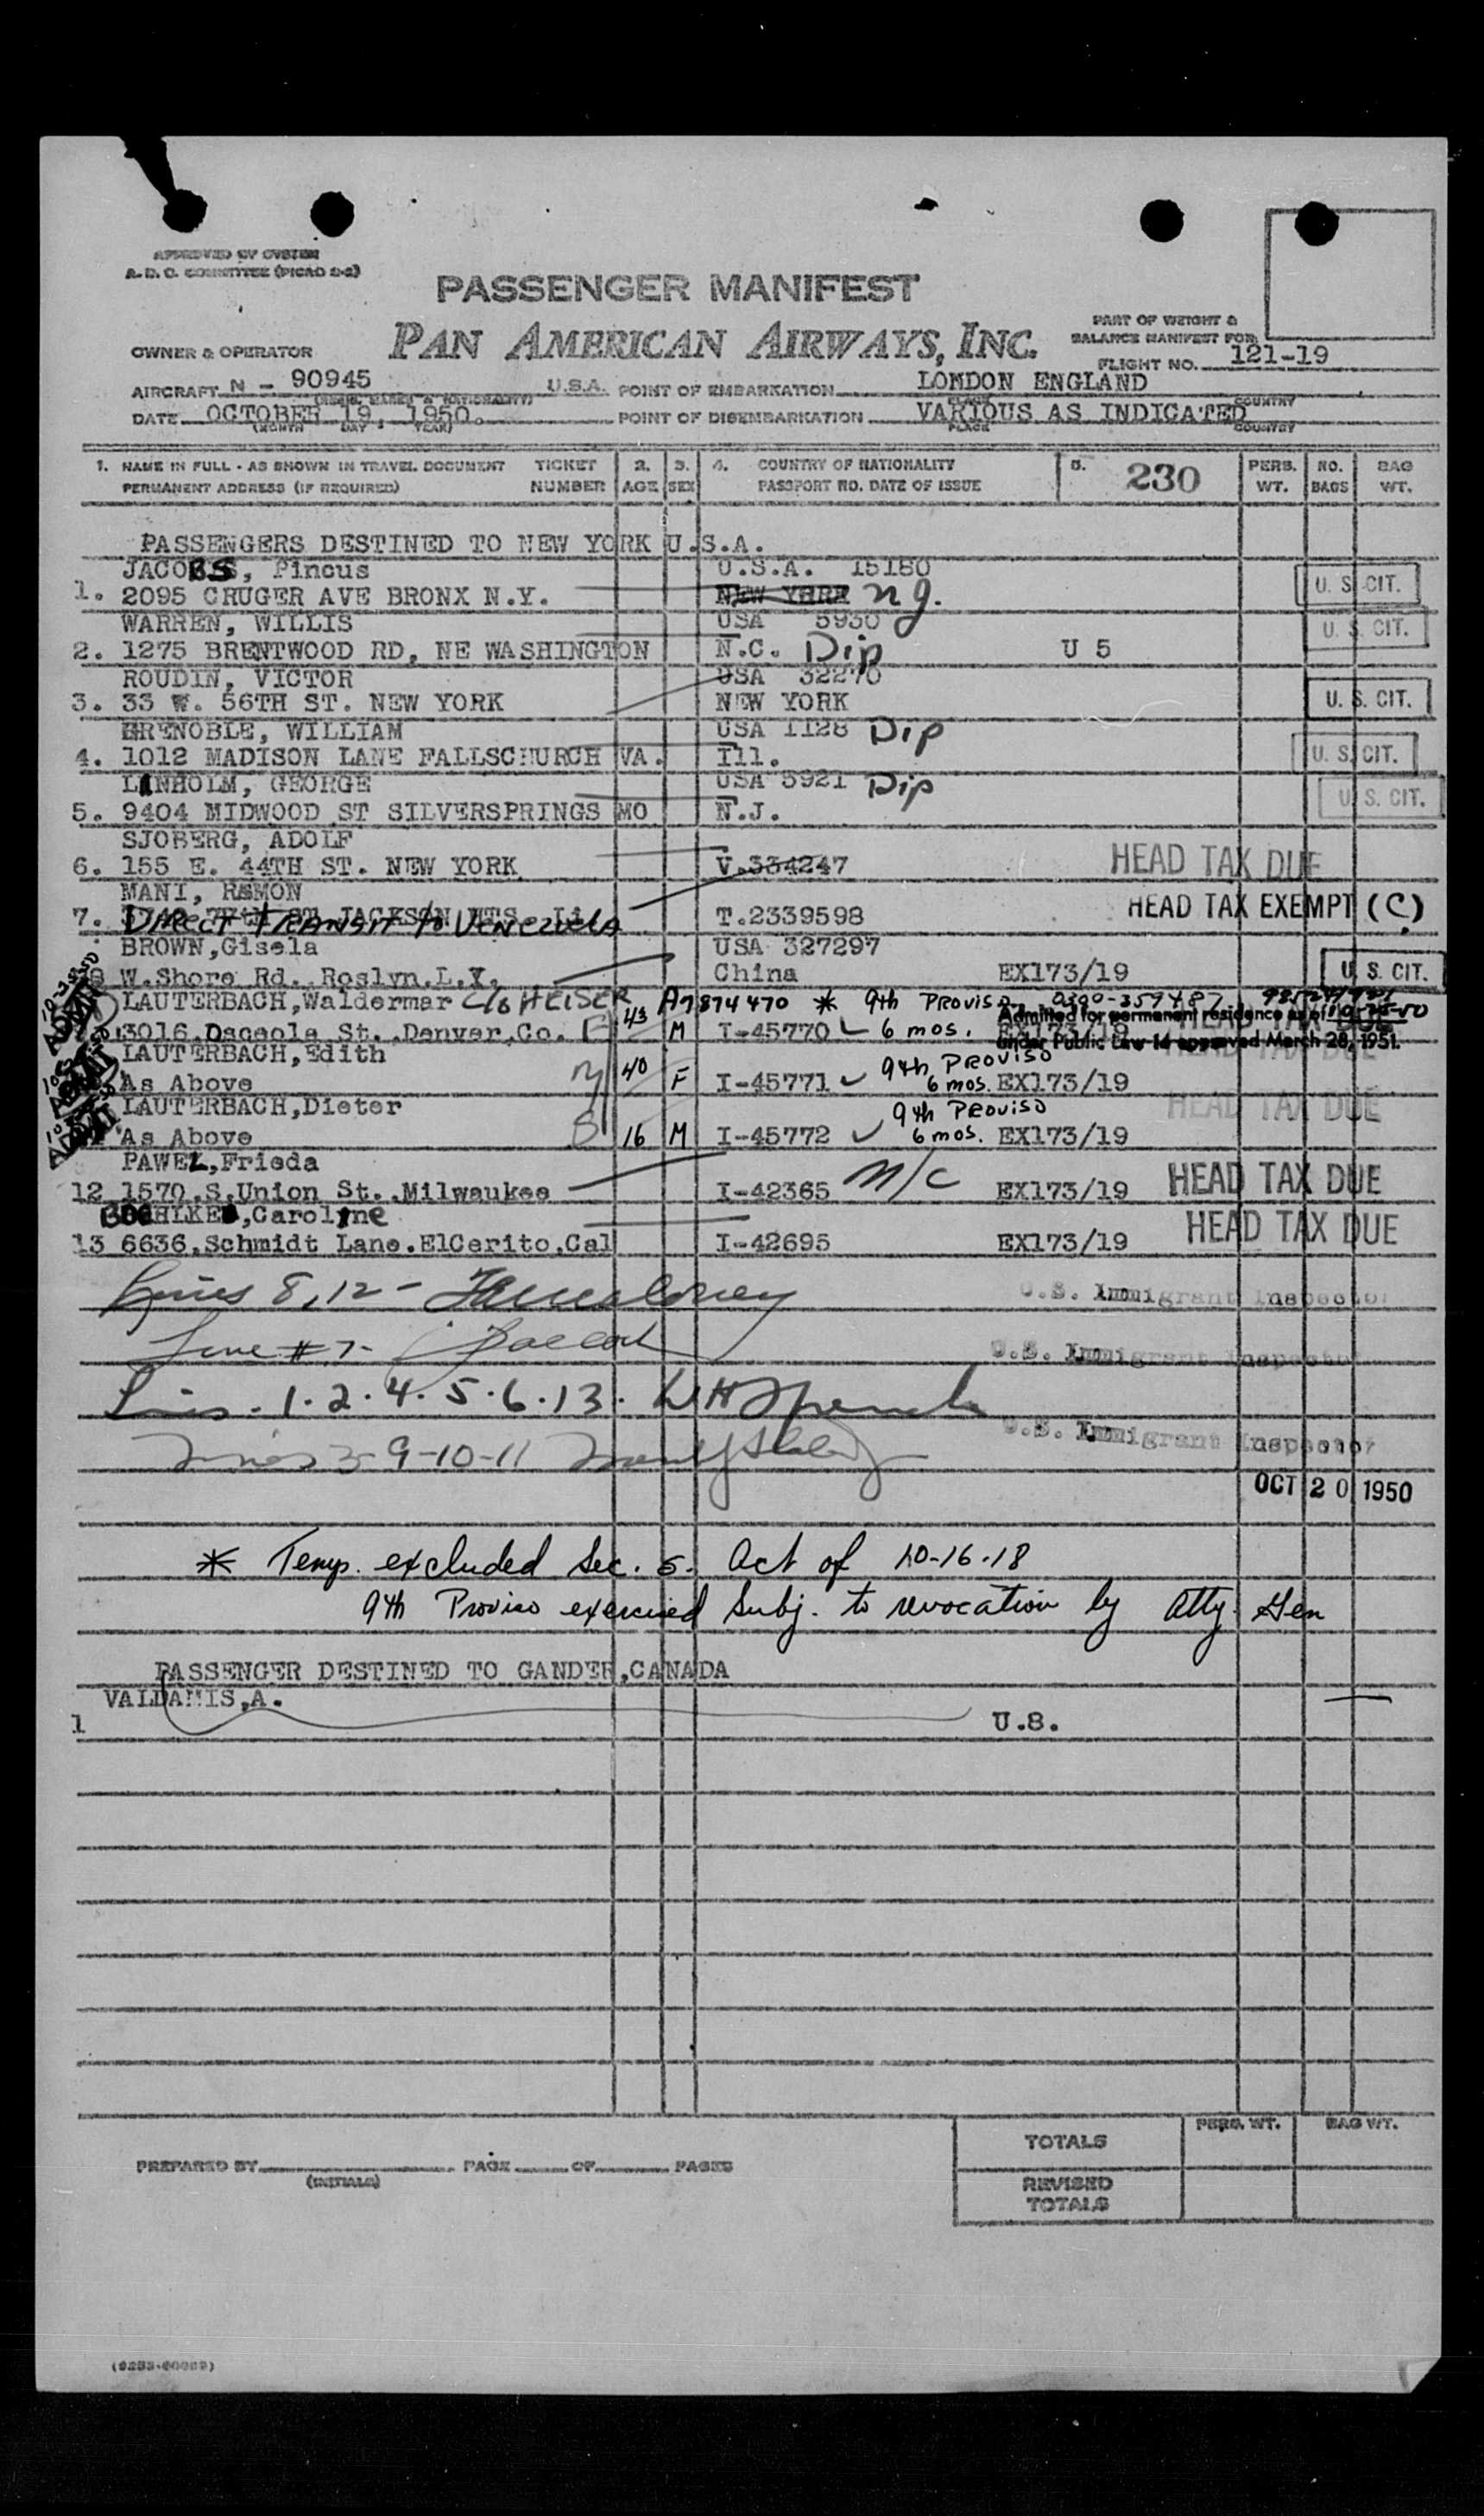 APPROVED BY SYSTEM
A. D. C. COMMITTEE (PICAO 2-2)
PASSENGER MANIFEST
PAN AMERICAN AIRWAYS, INC.
PART OF WEIGHT &
BALANCE MANIFEST FOR
OWNER & OPERATOR
FLIGHT NO. 121-19
AIRCRAFT N - 90945 U.S.A. POINT OF EMBARKATION LONDON ENGLAND
DATE OCTOBER 19, 1950. POINT OF DISEMBARKATION VARIOUS AS INDICATED
(MONTH DAY YEAR) PLACE COUNTRY
1. NAME IN FULL - AS SHOWN IN TRAVEL DOCUMENT TICKET 2. 3. 4. COUNTRY OF NATIONALITY 5. 230 PERS. NO. BAG
PERMANENT ADDRESS (IF REQUIRED) NUMBER AGE SEX PASSPORT NO. DATE OF ISSUE WT. BAGS WT.
PASSENGERS DESTINED TO NEW YORK U.S.A.
JACOBS, Pincus U.S.A. 15180
1. 2095 CRUGER AVE BRONX N.Y. NEW YORK U. S. CIT.
WARREN, WILLIS USA 5930
2. 1275 BRENTWOOD RD, NE WASHINGTON N.C. Dip U 5 U. S. CIT.
ROUDIN, VICTOR USA 32270
3. 33 W. 56TH ST. NEW YORK NEW YORK U. S. CIT.
GRENOBLE, WILLIAM USA 1128 Dip
4. 1012 MADISON LANE FALLSCHURCH VA. Ill. U. S. CIT.
LINHOLM, GEORGE USA 5921 Dip
5. 9404 MIDWOOD ST SILVERSPRINGS MO N.J. U. S. CIT.
SJOBERG, ADOLF
6. 155 E. 44TH ST. NEW YORK V.334247 HEAD TAX DUE
MANI, RAMON
7. DIRECT TRANSIT to VENEZUELA T.2339598 HEAD TAX EXEMPT (C)
BROWN,Gisela USA 327297
8 W.Shore Rd..Roslyn.L.I. China EX173/19 U. S. CIT.
LAUTERBACH,Waldermar C/o HEISER 43 A7874470 * 9th PROVISO 0300-359487
3016.Osceola St..Denver.Co. M I-45770 6 mos. EX173/19 Admitted for permanent residence as of 10-25-50
under Public Law 14 approved March 28, 1951.
LAUTERBACH,Edith 40 9th PROVISO
As Above F I-45771 6 mos. EX173/19 HEAD TAX DUE
LAUTERBACH,Dieter 9th PROVISO
As Above 16 M I-45772 6 mos. EX173/19 HEAD TAX DUE
PAWEL,Frieda
12 1570.S.Union St..Milwaukee I-42365 N/C EX173/19 HEAD TAX DUE
BOEHLKE,Carolyne
13 6636.Schmidt Lane.ElCerito.Cal I-42695 EX173/19 HEAD TAX DUE
Lines 8, 12- U.S. Immigrant Inspector
Line # 7- U.S. Immigrant Inspector
Lines - 1. 2. 4. 5. 6. 13.
U.S. Immigrant Inspector
Lines 3-9-10-11
OCT 20 1950
* Temp. excluded Sec. 5. Act of 10-16-18
9th Proviso exercised subj. to revocation by Atty. Gen
PASSENGER DESTINED TO GANDER,CANADA
VALDAMIS,A.
1 U.S.
TOTALS PERS. WT. BAG WT.
PREPARED BY PAGE OF PAGES
(INITIALS)
REVISED
TOTALS